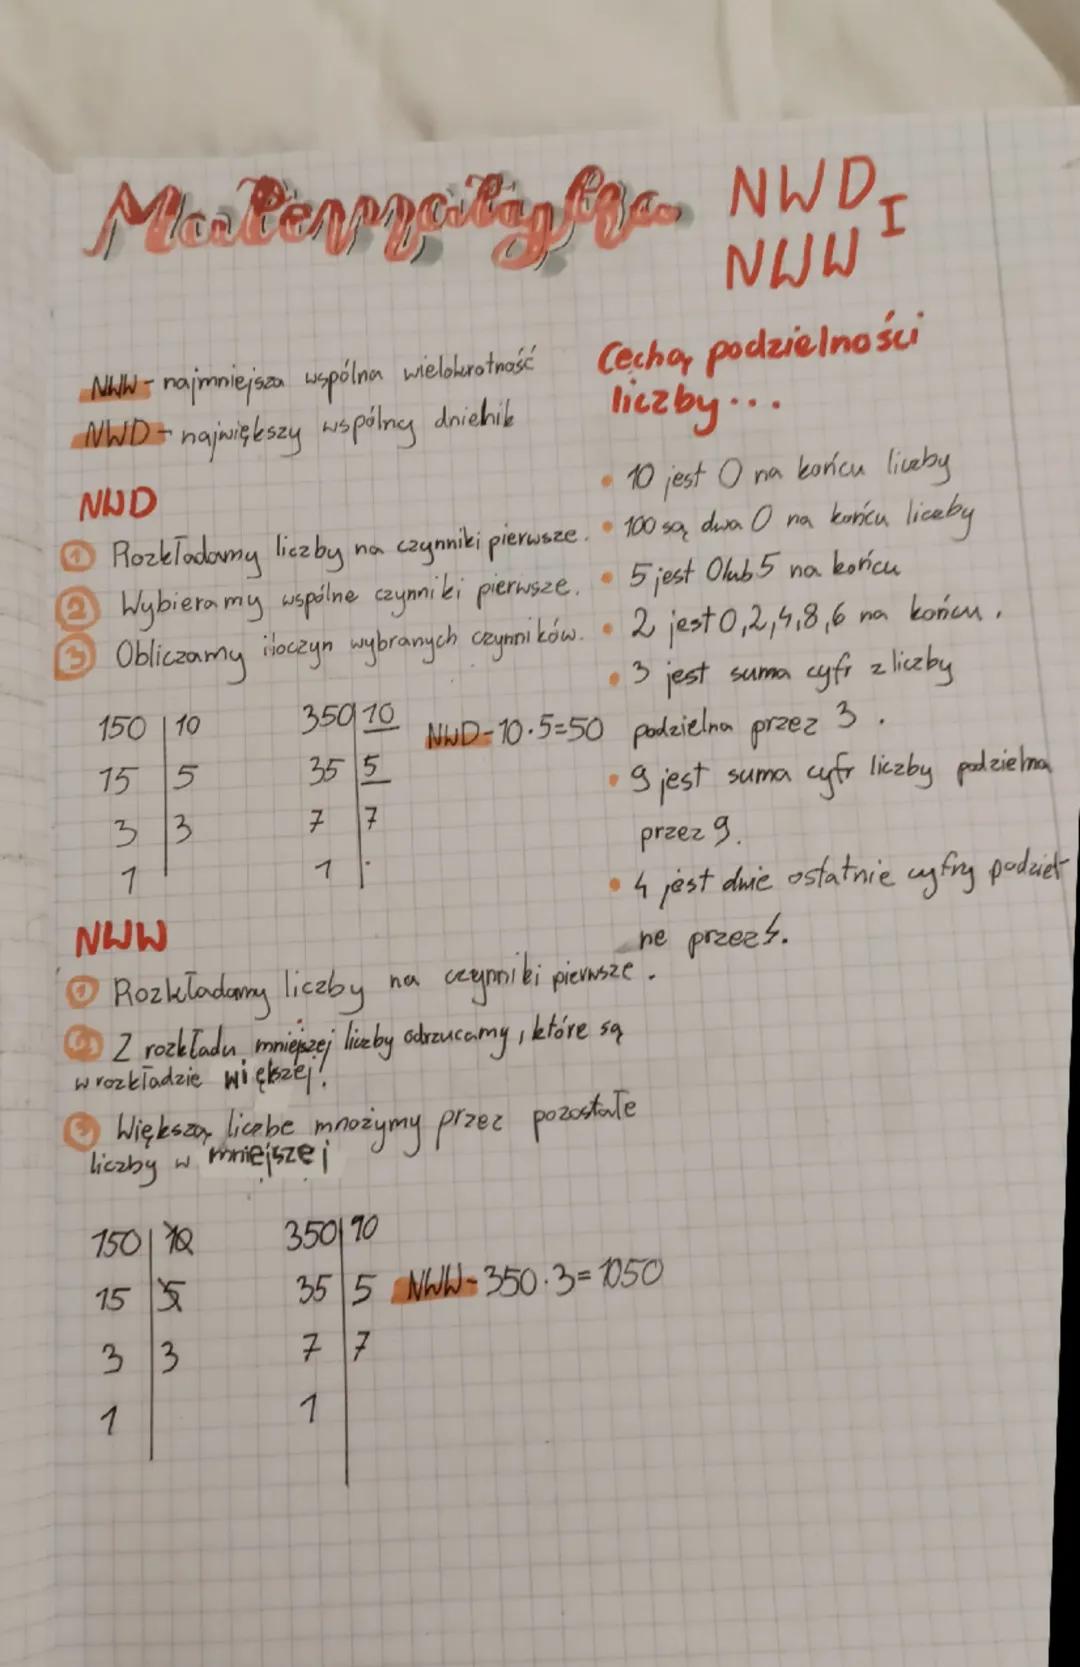 Matematyka
NWD I
NWW
NWW - najmniejsza wspólna wielokrotność
NWD - największy wspólny dzielnik
NWD
1 Rozkładamy liczby na czynniki pierwsze.
2 Wybieramy wspólne czynniki pierwsze.
3 Obliczamy iloczyn wybranych czynników.
150 | 10
15 | 5
3 | 3
1
350 | 10
35 | 5
7 | 7
1 | .
NWD - 10·5=50
NWW
1 Rozkładamy liczby na czynniki pierwsze.
2 Z rozkładu mniejszej liczby odrzucamy, które są
w rozkładzie większej!
3 Większą liczbe mnożymy przez pozostałe
liczby w mniejszej
150 | 10
15 | 5
3 | 3
1
350 | 10
35 | 5
7 | 7
1
NWW - 350·3=1050
Cechą podzielności
liczby...
• 10 jest 0 na końcu liczby
• 100 są dwa 0 na końcu liczby
• 5 jest 0 lub 5 na końcu
• 2 jest 0,2,4,8,6 na końcu.
• 3 jest suma cyfr z liczby
podzielna przez 3.
• 9 jest suma cyfr liczby podzielna
przez 9.
• 4 jest dwie ostatnie cyfry podziel-
ne przez 4.